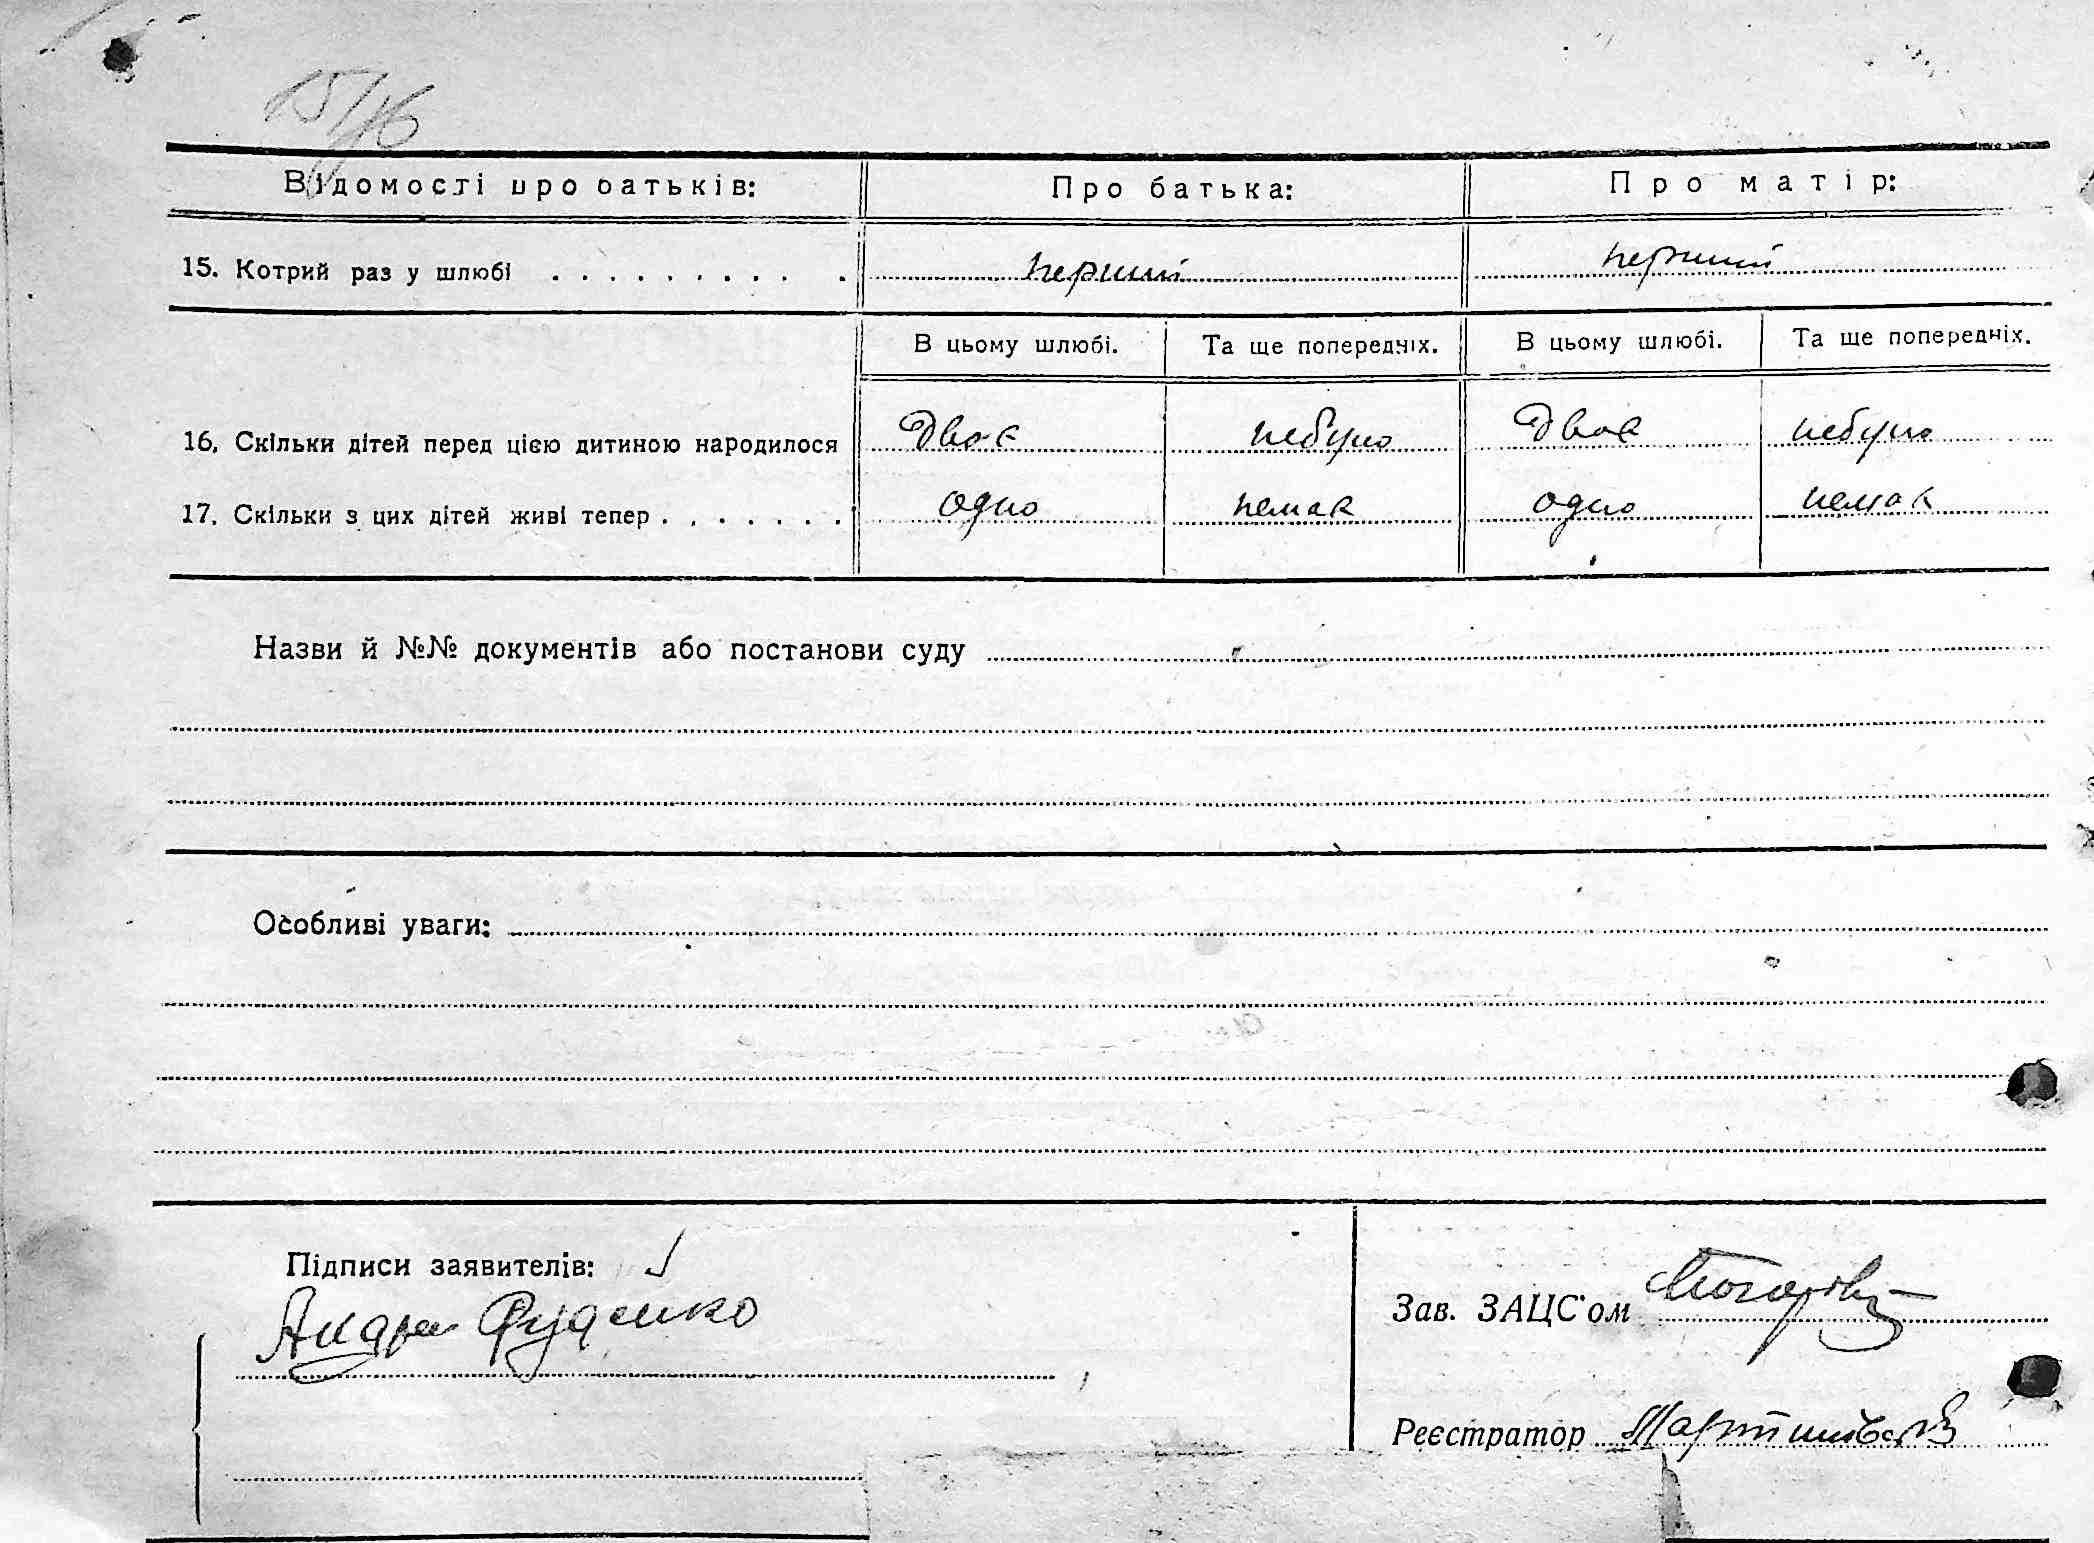 15/16
Відомості про батьків: Про батька: Про матір:
15. Котрий раз у шлюбі . . . . . . . . . . перший перший
В цьому шлюбі. Та ще попередніх. В цьому шлюбі. Та ще попередніх.
16. Скільки дітей перед цією дитиною народилося двоє небуло двоє небуло
17. Скільки з цих дітей живі тепер . . . . . . . одно немає одно немає
Назви й №№ документів або постанови суду
Особливі уваги:
Підписи заявителів:
Руденко
Зав. ЗАЦС'ом
Реєстратор